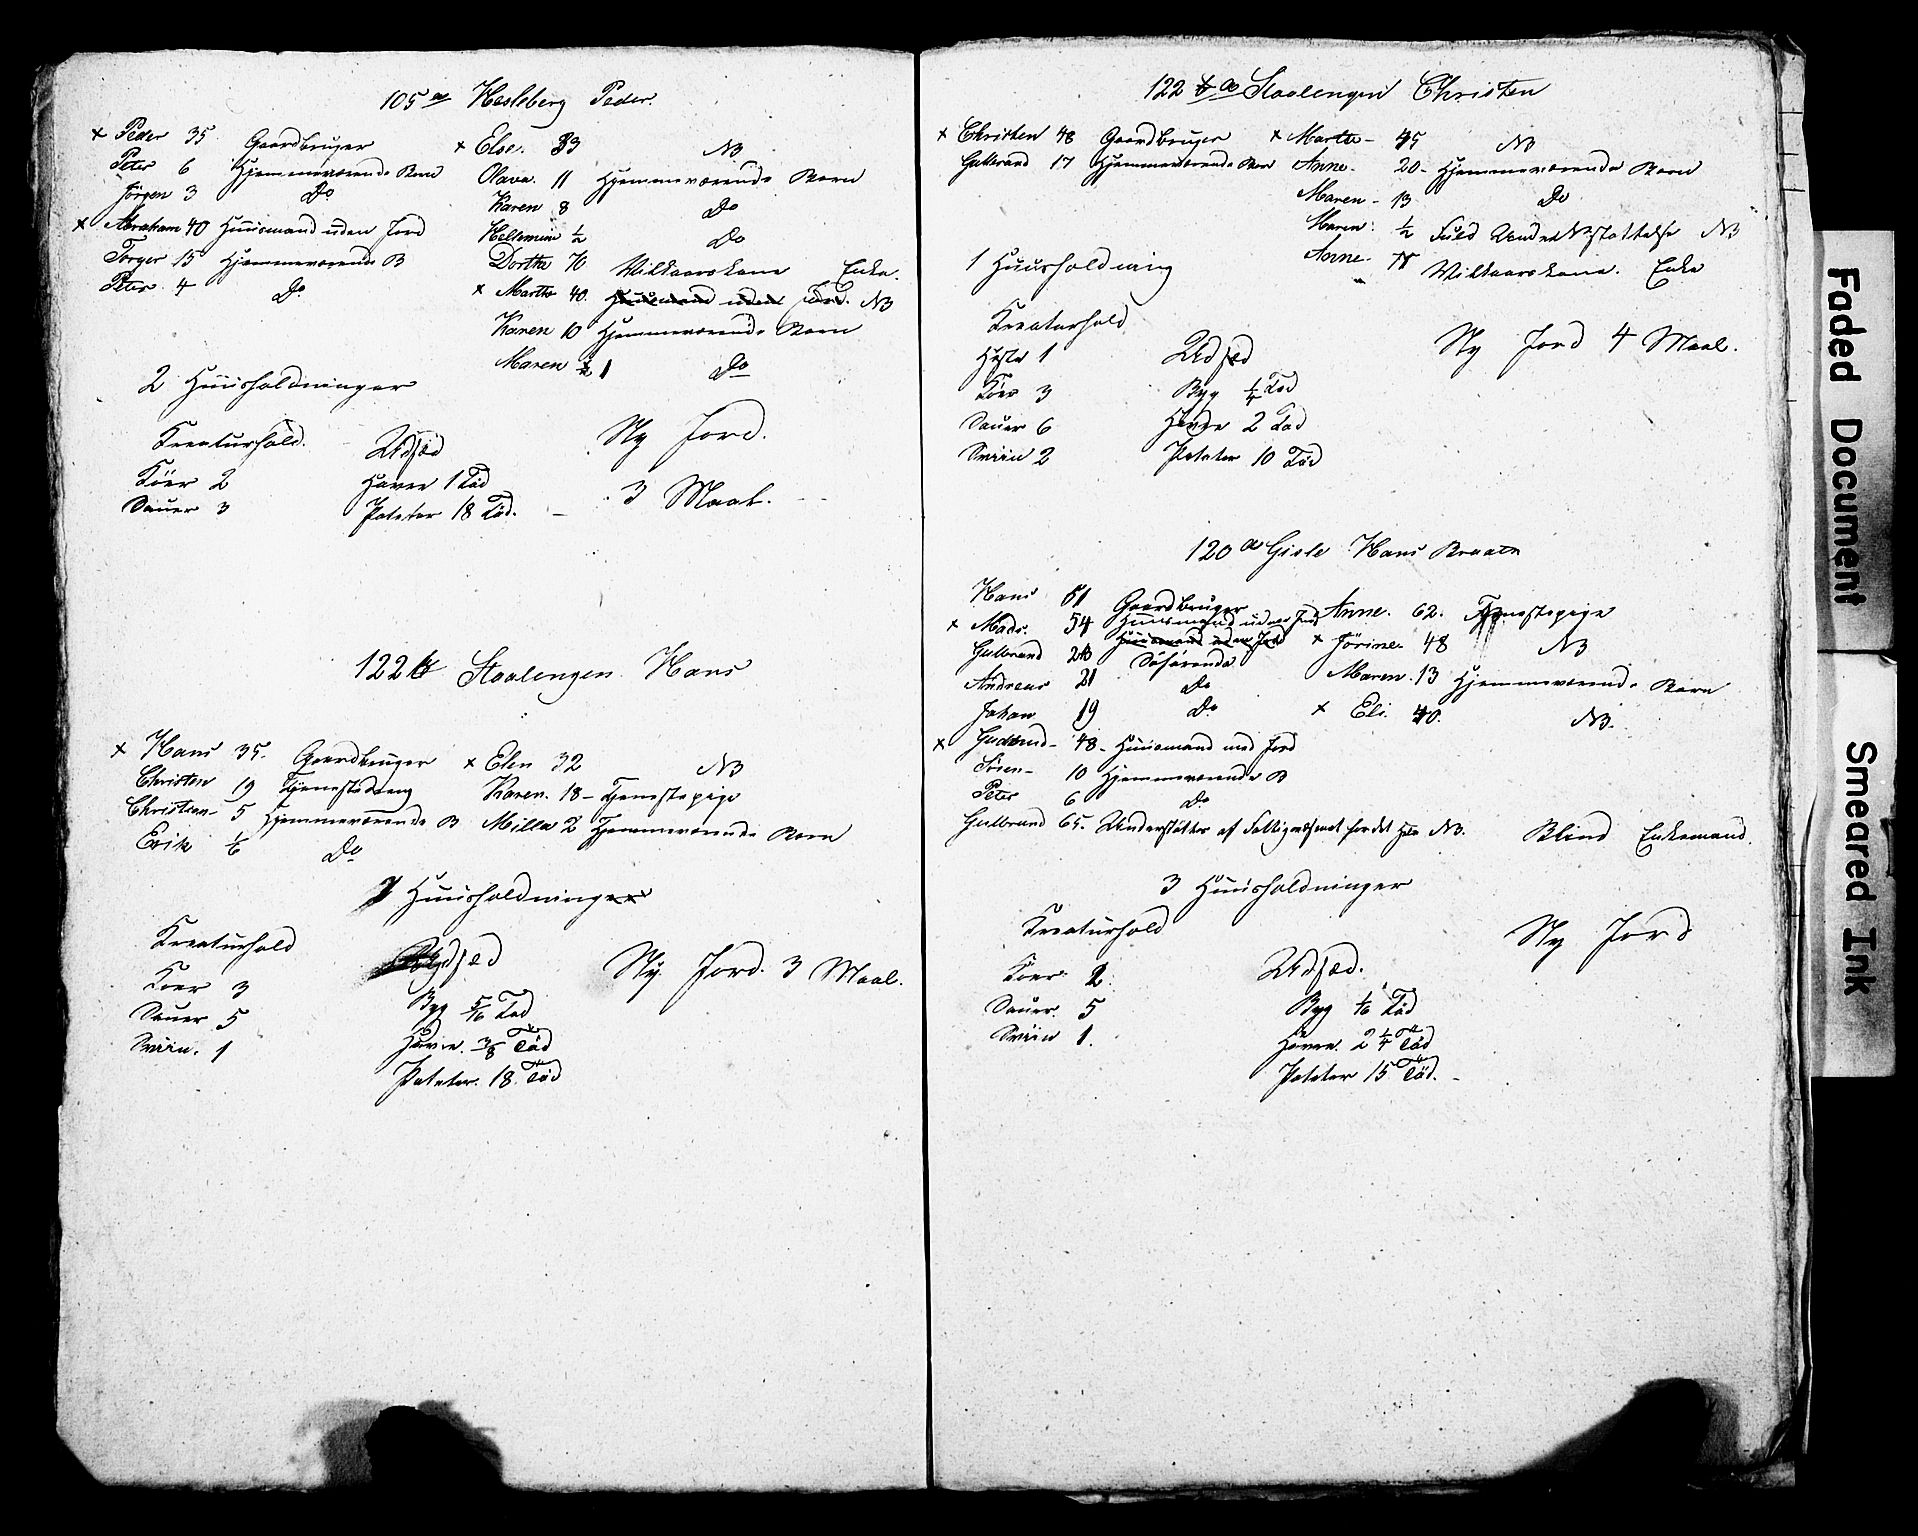 105 a Hesleberg Peder.
× Peder 35 Gaardbruger
Peter 6 Hjemmeværende Børn
Jörgen 3 Do
× Abraham 40 Huusmand uden Jord
Torger 15 Hjemmeværende B
Peter 4 Do
× Else. 33 NB
Olava. 11 Hjemmeværende Børn
Karen 8 Do
Helsemine ½ Do
Dorthe 70 Wilkaarskone Enke.
× Marthe 40. Huusmand uden Jord. NB
Karen 10 Hjemmeværende Børn
Maren 1 Do
2 Huusholdninger
Kreaturhold.
Köer 2
Sauer 3
Udsæd
Havre 1 Töd
Poteter 18 Töd.
Ny Jord.
3 Maal.
122 b Staalengen Hans
× Hans 35. Gaardbruger
Christen 19 Tjenestedreng
Christian 5 Hjemmeværende B
Erik 1/6 Do
× Elen 32 NB
Karen. 18 - Tjenestepige
Milla 2 Hjemmeværende Børn
1 Huusholdninger
Kreaturhold
Koer 3
Sauer 5
Sviin. 1
Udsæd
Byg 5/16 Töd
Havre. 3/8 Töd
Poteter. 18. Töd
Ny Jord. 3 Maal.
122 b a Staalengen Christen
× Christen 48 Gaardbruger
Gulbrand 17 Hjemmeværende Børn
× Marthe - 45 NB
Anne - 20 - Hjemmeværende Børn
Maren - 13 Do
Maren ½ Fuld Understöttelse NB
Anne. Wilkaarskone. Enke
1 Huusholdning
Kreaturhold
Heste 1
Köer 3
Sauer 6
Sviin 2
Udsæd
Byg ¼ Töd
Havre 2 Töd
Poteter 10 Töd
Ny Jord 4 Maal.
120 a Gisle Hans Braaten
Hans 61 Gaardbruger
× Mads. 54 Huusmand uden Jord
Huusmand uden Jord
Gulbrand Söfarende
Andreas 21 Do
Johan 19 Do
× Gulbrand - 48 - Huusmand med Jord
Sören - 10 Hjemmeværende B
Peter 6 Do
Gulbrand 65. Understöttes af Fattigvæsenet NB. Blind Enkemand.
Anne. 62. Tjenestepige
× Jörine 48 NB
Maren. 13 Hjemmeværende Børn
× Eli. 40. NB.
3 Huusholdninger
Kreaturhold
Koer 2.
Sauer. 5
Sviin 1.
Udsæd.
Byg 1/16 Töd
Havre. 2 ¼ Töd
Poteter 15 Töd.
Ny Jord
Faded Document
Smeared Ink